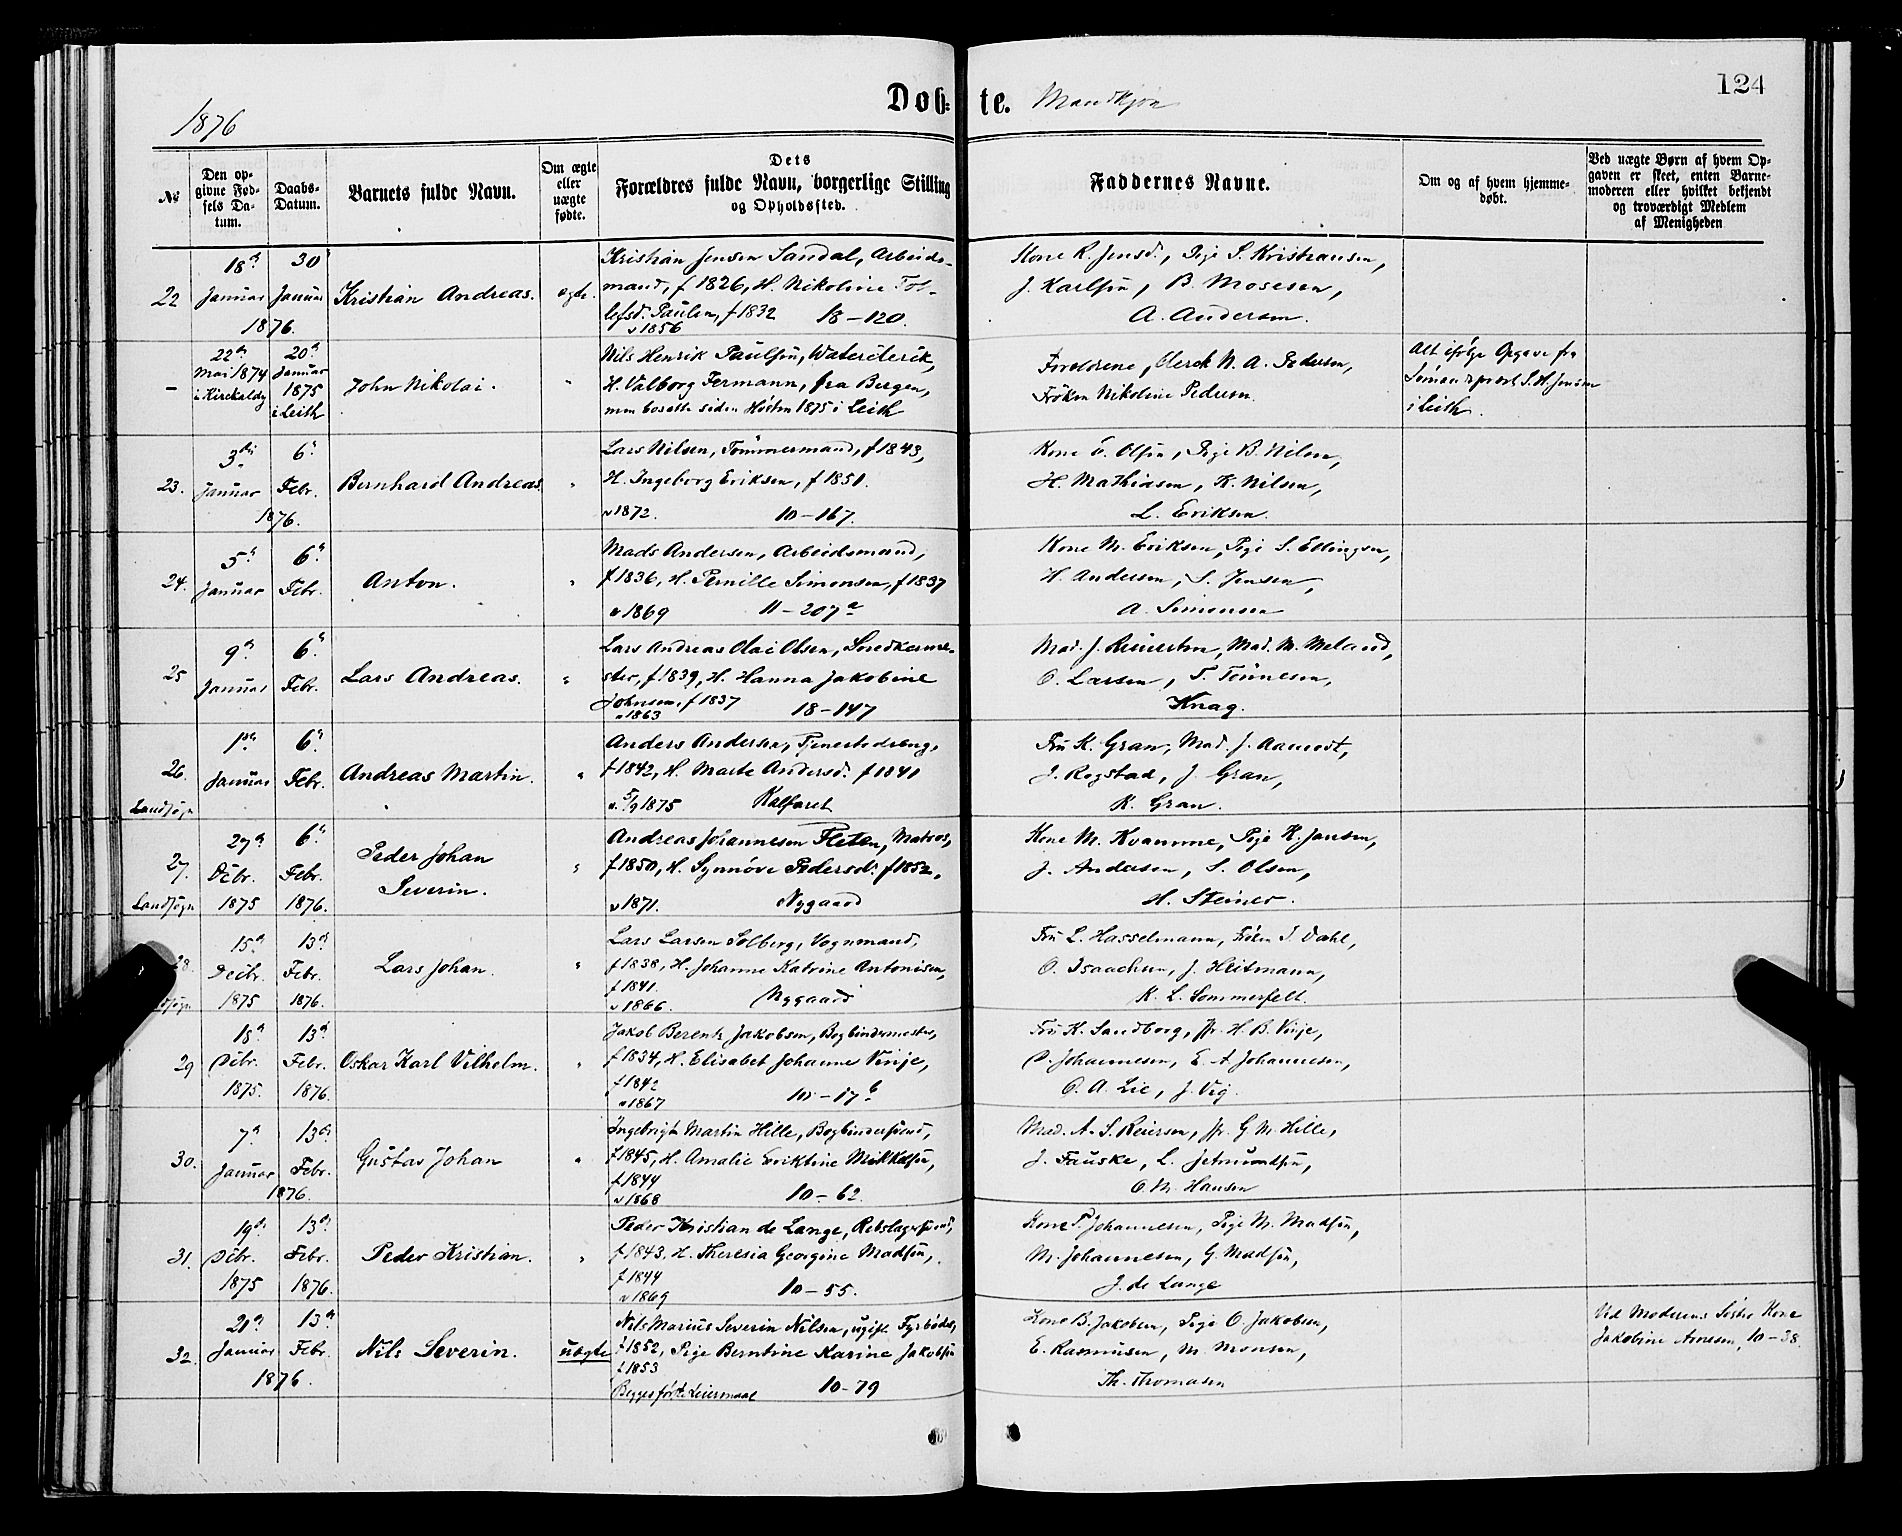 124
1876
Døb=te. Mandkjøn
№
Den op-
givne Fød-
sels Da-
tum.
Daabs-
Datum.
Barnets fulde Navn.
Om ægte
eller
uægte
fødte.
Dets
Forældres fulde Navn, borgerlige Stilling
og Opholdssted.
Faddernes Navne.
Om og af hvem hjemme-
døbt.
Ved uægte Børn af hvem Op-
gaven er skeet, enten Barne-
moderen eller hvilket bekjendt
og troværdigt Medlem
af Menigheden
22
18de Januar
30 Januar
1876.
Kristian Andreas.
ægte.
Kristian Jensen Sandal, Arbeids-
mand, f 1826, H. Nikoline Tol-
lefsd. Paulsen, f 1832
v 1856
18-120.
Kone R. Jensd., Pige S. Kristiansen,
J. Karlsen, B. Mosesen,
A. Andersen.
–
22de
Mai 1874
i Kirckaldy
20de
Januar
1875
i Leith
John Nikolai.
"
Nils Henrik Paulsen, Waterclerik,
H. Valborg Fermann, fra Bergen,
men bosatte siden Høsten 1875 i Leith
Foreldrene, Clerck N. A. Pedersen,
Frøken Nikoline Pedersen.
Alt ifølge Opgave fra
Sømandsprest S. H. Jensen
i Leith.
23.
3die Januar
6te Febr.
1876.
Bernhard Andreas.
"
Lars Nilsen, Tømmermand, f 1843,
H. Ingeborg Eriksen, f 1851.
v 1872.
10-167.
Kone O. Olsen, Pige B. Nilsen,
H. Mathiasen, K. Nilsen,
L. Eriksen.
24.
5te Januar
6te Febr.
Anton.
"
Mads Andersen, Arbeidsmand,
f 1836, H. Pernille Simonsen, f 1837
v 1869
11-207a
Kone M. Eriksen, Pige S. Ellingsen,
H. Andersen, S. Jensen,
A. Simonsen
25
9de Januar
6te Febr.
Lars Andreas.
"
Lars Andreas Olai Olsen, Snedkerme-
ster, f 1839, H. Hanna Jakobine
Johnsen, f 1837
v 1863
18-147
Mad. J. Reiersen, Mad. M. Meland,
O. Larsen, T. Tønnesen,
Knag.
26.
Landsogn
1ste Januar
6te Febr.
Andreas Martin.
"
Anders Andersen, Tjenestedreng,
f 1842, H. Marte Andersd. f 1841
v. 5/9 1875
Kalfaret
Fru K. Gran, Mad. J. Aamodt,
J. Rogstad, J. Gran,
K. Gran.
27.
Landsogn
27de
Dcbr.
1875
6te
Febr.
1876.
Peder Johan
Severin.
"
Andreas Johannesen Fleten, Matros,
f 1850, H. Synnøve Pedersd. f 1852,
v 1871.
Nygaard
Kone M. Kvamme, Pige K. Jansen,
J. Andersen, S. Olsen,
H. Steiner.
28.
15de
Decbr.
1875
13de
Febr.
1876.
Lars Johan.
"
Lars Larsen Solberg, Vognmand,
f 1838, H. Johanne Katrine Antonisen,
f 1841.
v 1866.
Nygaard
Fru L. Hasselmann, Frøken S. Dahl,
O. Isaachsen, J. Heitmann,
K. L. Sommerfelt.
29
18de
Dcbr.
1875.
13de
Febr.
1876.
Oskar Karl Vilhelm.
"
Jakob Berentz Jakobsen, Bogbindermester,
f 1834, H. Elisabet Johanne Vinje,
f 1842
v 1867
10-17b
Fru K. Sandborg, Jfr. H. B. Vinje,
D. Johannesen, E. A. Johannesen,
O. A. Lie, J. Vig.
30.
7de
Januar
13de
Febr.
1876.
Gustav Johan
"
Ingebrigt Martin Hille, Bogbindersvend,
f 1845, H. Amalie Eriktine Mikkelsen,
f 1844
v 1868
10-62.
Mad. A. S. Reiersen, Jfr. G. M. Hille,
J. Fauske, L. Jetmundsen,
O. M. Hansen
31.
19de
Dcbr.
1875
13de
Febr.
1876.
Peder Kristian.
"
Peder Kristian de Lange, Rebslagersvend,
f 1843, H. Theresia Georgine Madsen,
f 1844
v 1869
10-55.
Kone P. Johannesen, Pige M. Madsen,
M. Johannesen, G. Madsen,
J. de Lange
32.
21de
Januar
13de
Febr.
1876.
Nils Severin.
uægte
Nils Marius Severin Nilsen, ugift Fyrbøder,
f 1852, Pige Berntine Karine Jakobsen
f 1853
Begges første Leiermaal
10-79
Kone B. Jakobsen, Pige O. Jakobsen,
E. Rasmusen, M. Monsen,
Th. Thomasen
Ved Moderens Søster Kone
Jakobine Arnesen, 10-38.